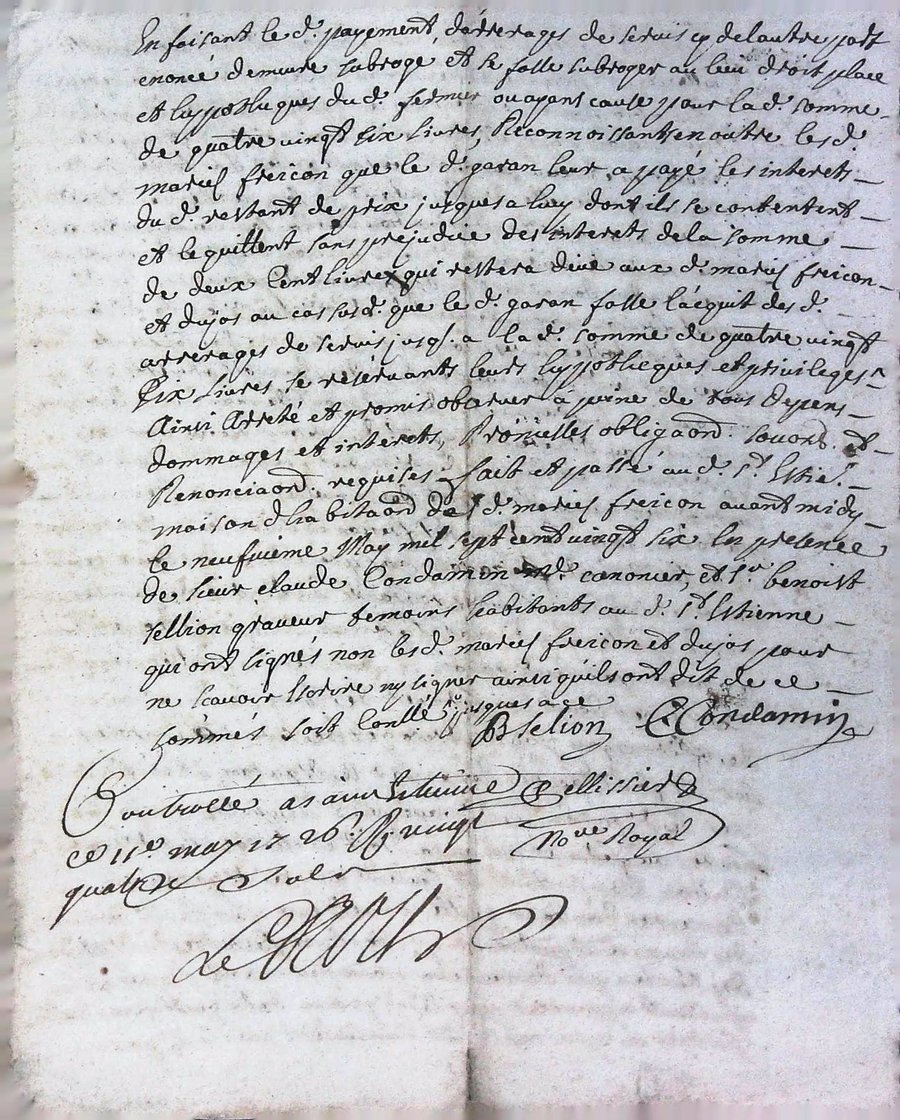 En faisant le d. payement, d'arrerages de servis cy delautre part
enoncé demeure subrogé et se fasse subroger au lieu droit place
et hyppotheques dud. fermier ou ayans cause pour la d. somme
de quatre vingt dix livres, Reconnoissants en outre lesd.
mariés freicon que le d. garan leur a payé les interets
du d. restant de prix jusques a huy dont ils se contentent
et le quittent sans prejudice des interets de la somme
de deux Cent livres qui restera deüe aux d. mariés freicon
et dujas au cas susd. que le d. garan fasse l'acquit des d.
arrerages de servis jusq. a la d. somme de quatre vingt
Dix livres, se reservants leurs hyppotheques et privileges
Ainsi Arreté et promis observer a peine de tous Depens
dommages et interets, Promesses obligaōns. et
Renonciaōns. requises fait et passé au d. St Estie.
maison d'habitaōn des d. mariés freicon avant midy
le neufvieme May mil sept cent vingt six En presence
de sieur claude Condamin md. canonier, et Sr. benoist
sellion graveur temoins habitants au d. St Estienne
qui ont signés non lesd. mariés freicon et dujas pour
ne scavoir Escrire ny signer ainsi qu'ils ont dit de ce
sommés soit Conllé jusques a ce
B selion C Condamin
Controllé a saint Etienne Pellissier
ce 11e may 1726. R. vingt Nore. Royal
quatre sols